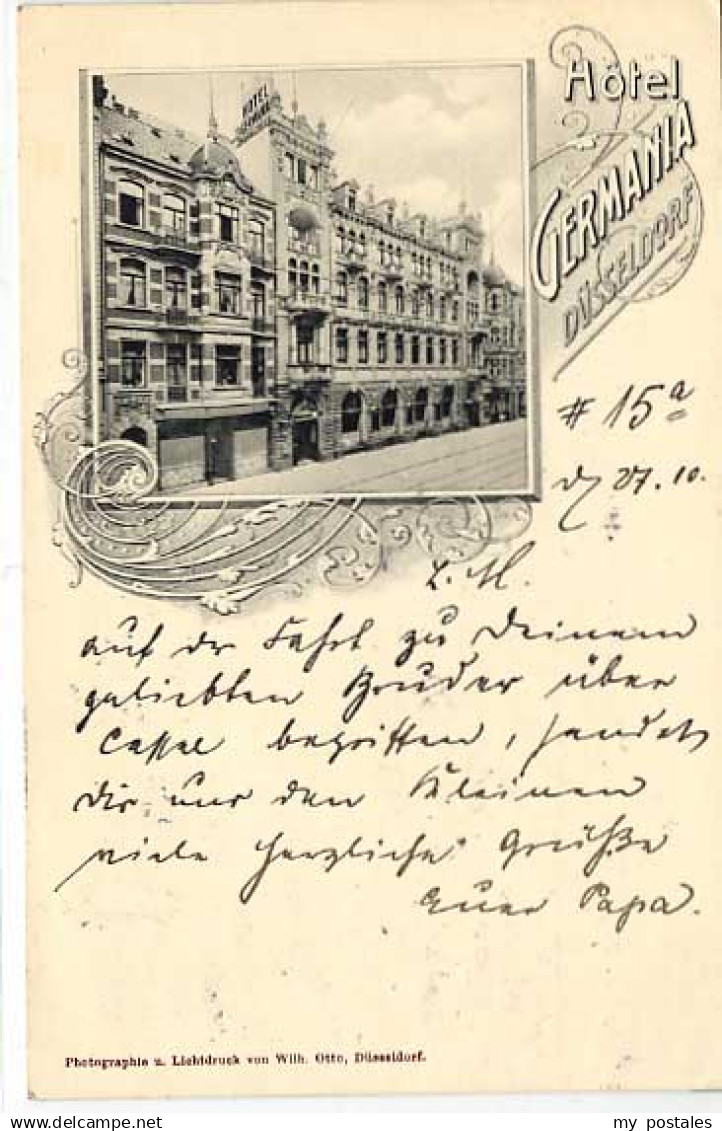 HOTEL
Hôtel
GERMANIA
DÜSSELDORF
# 15ª
27.10.
L. M.
auf der Fahrt zu Deinem
geliebten Bruder über
Cassel begriffen, sendet
Dir und den Kleinen
viele herzliche Grüße
Euer Papa.
Photographie u. Lichtdruck von Wilh. Otto, Düsseldorf.
my postales